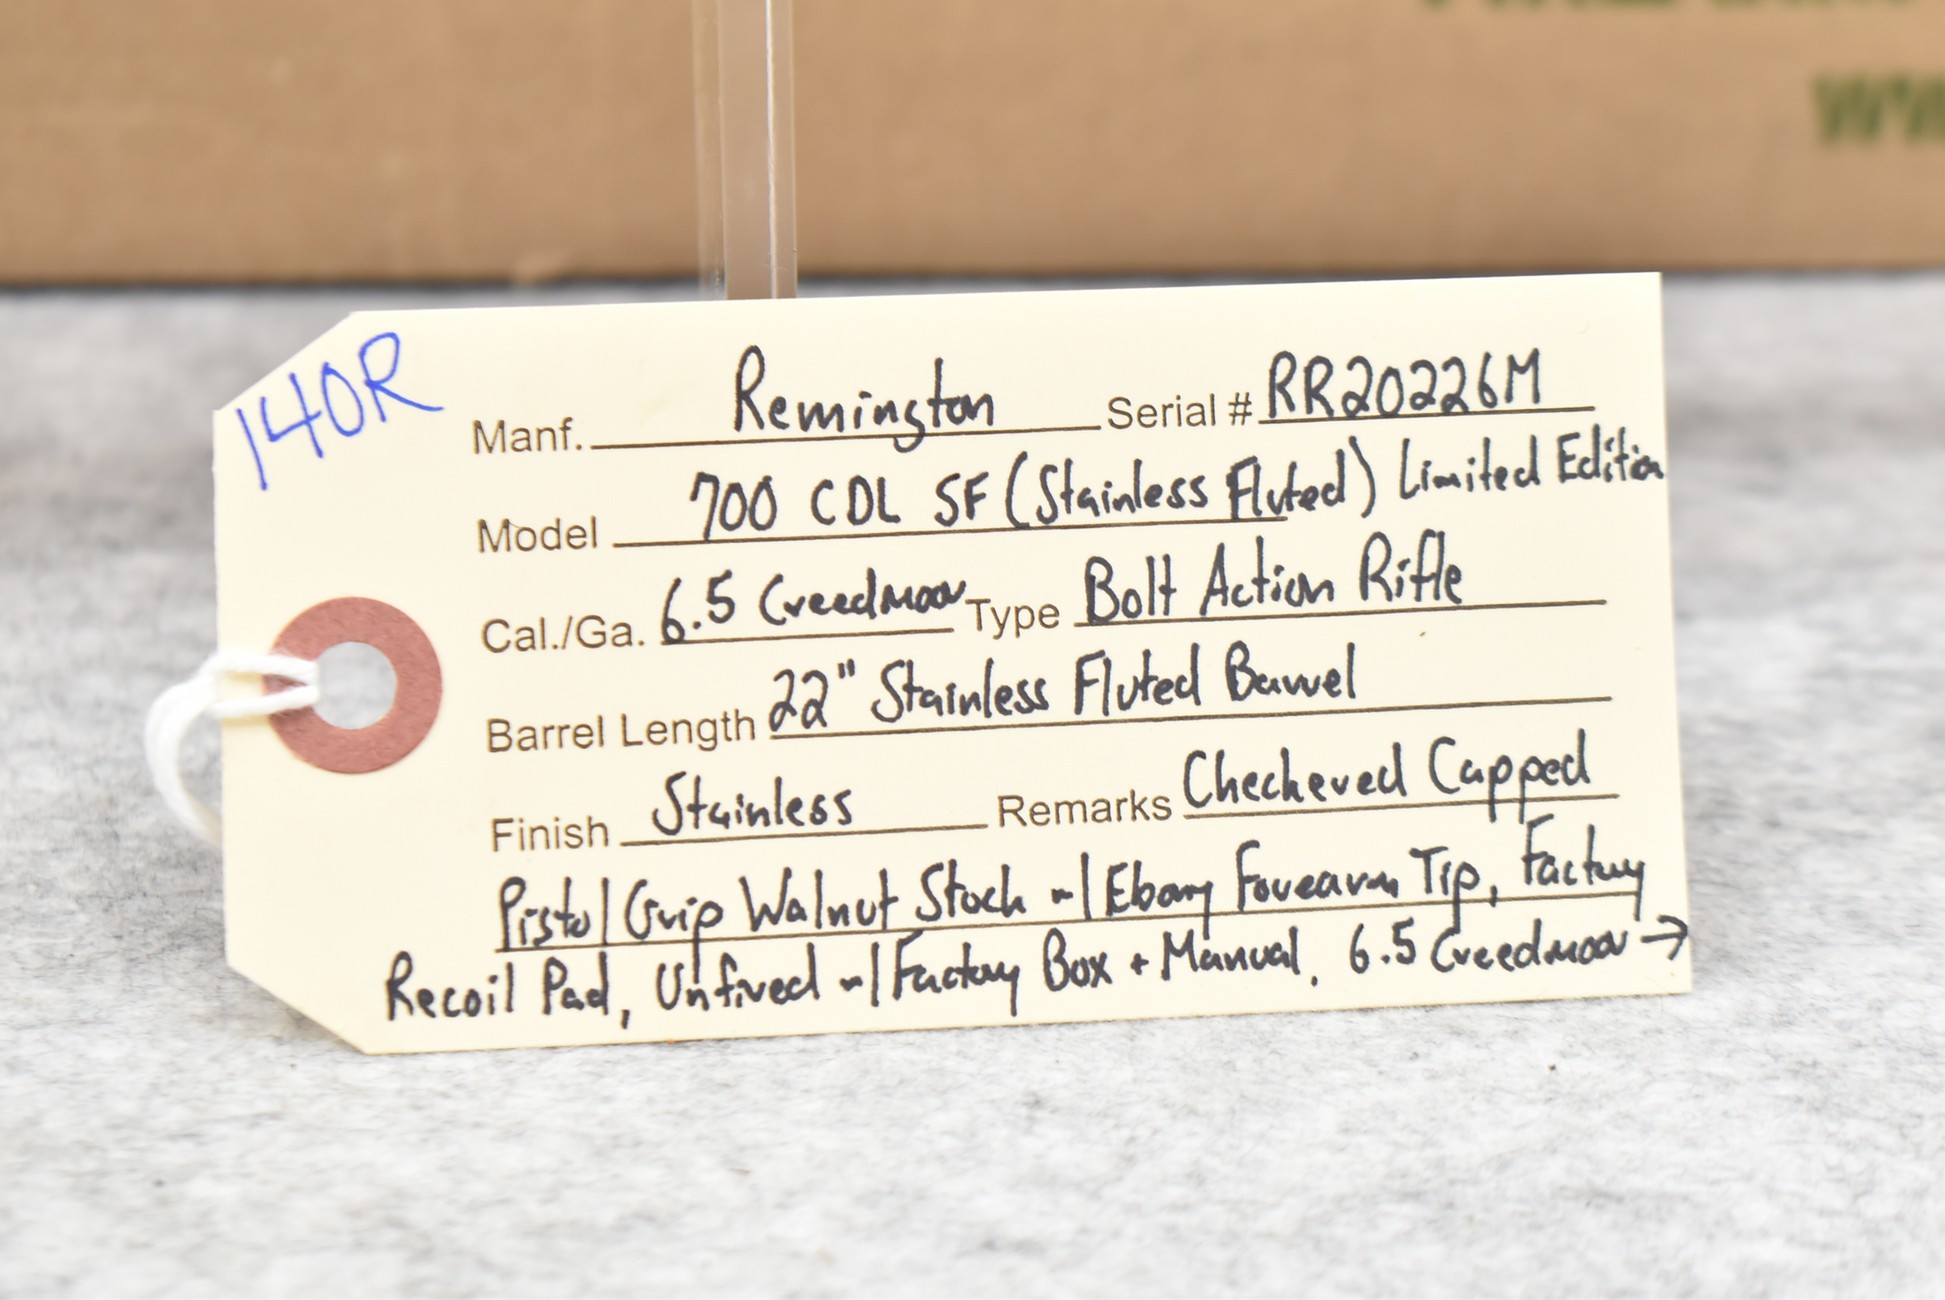 140R
Manf. Remington Serial # RR20226M
Model 700 CDL SF (Stainless Fluted) Limited Edition
Cal./Ga. 6.5 Creedmoor Type Bolt Action Rifle
Barrel Length 22" Stainless Fluted Barrel
Finish Stainless Remarks Checkered Capped
Pistol Grip Walnut Stock w/ Ebony Forearm Tip, Factory
Recoil Pad, Unfired w/ Factory Box + Manual. 6.5 Creedmoor →